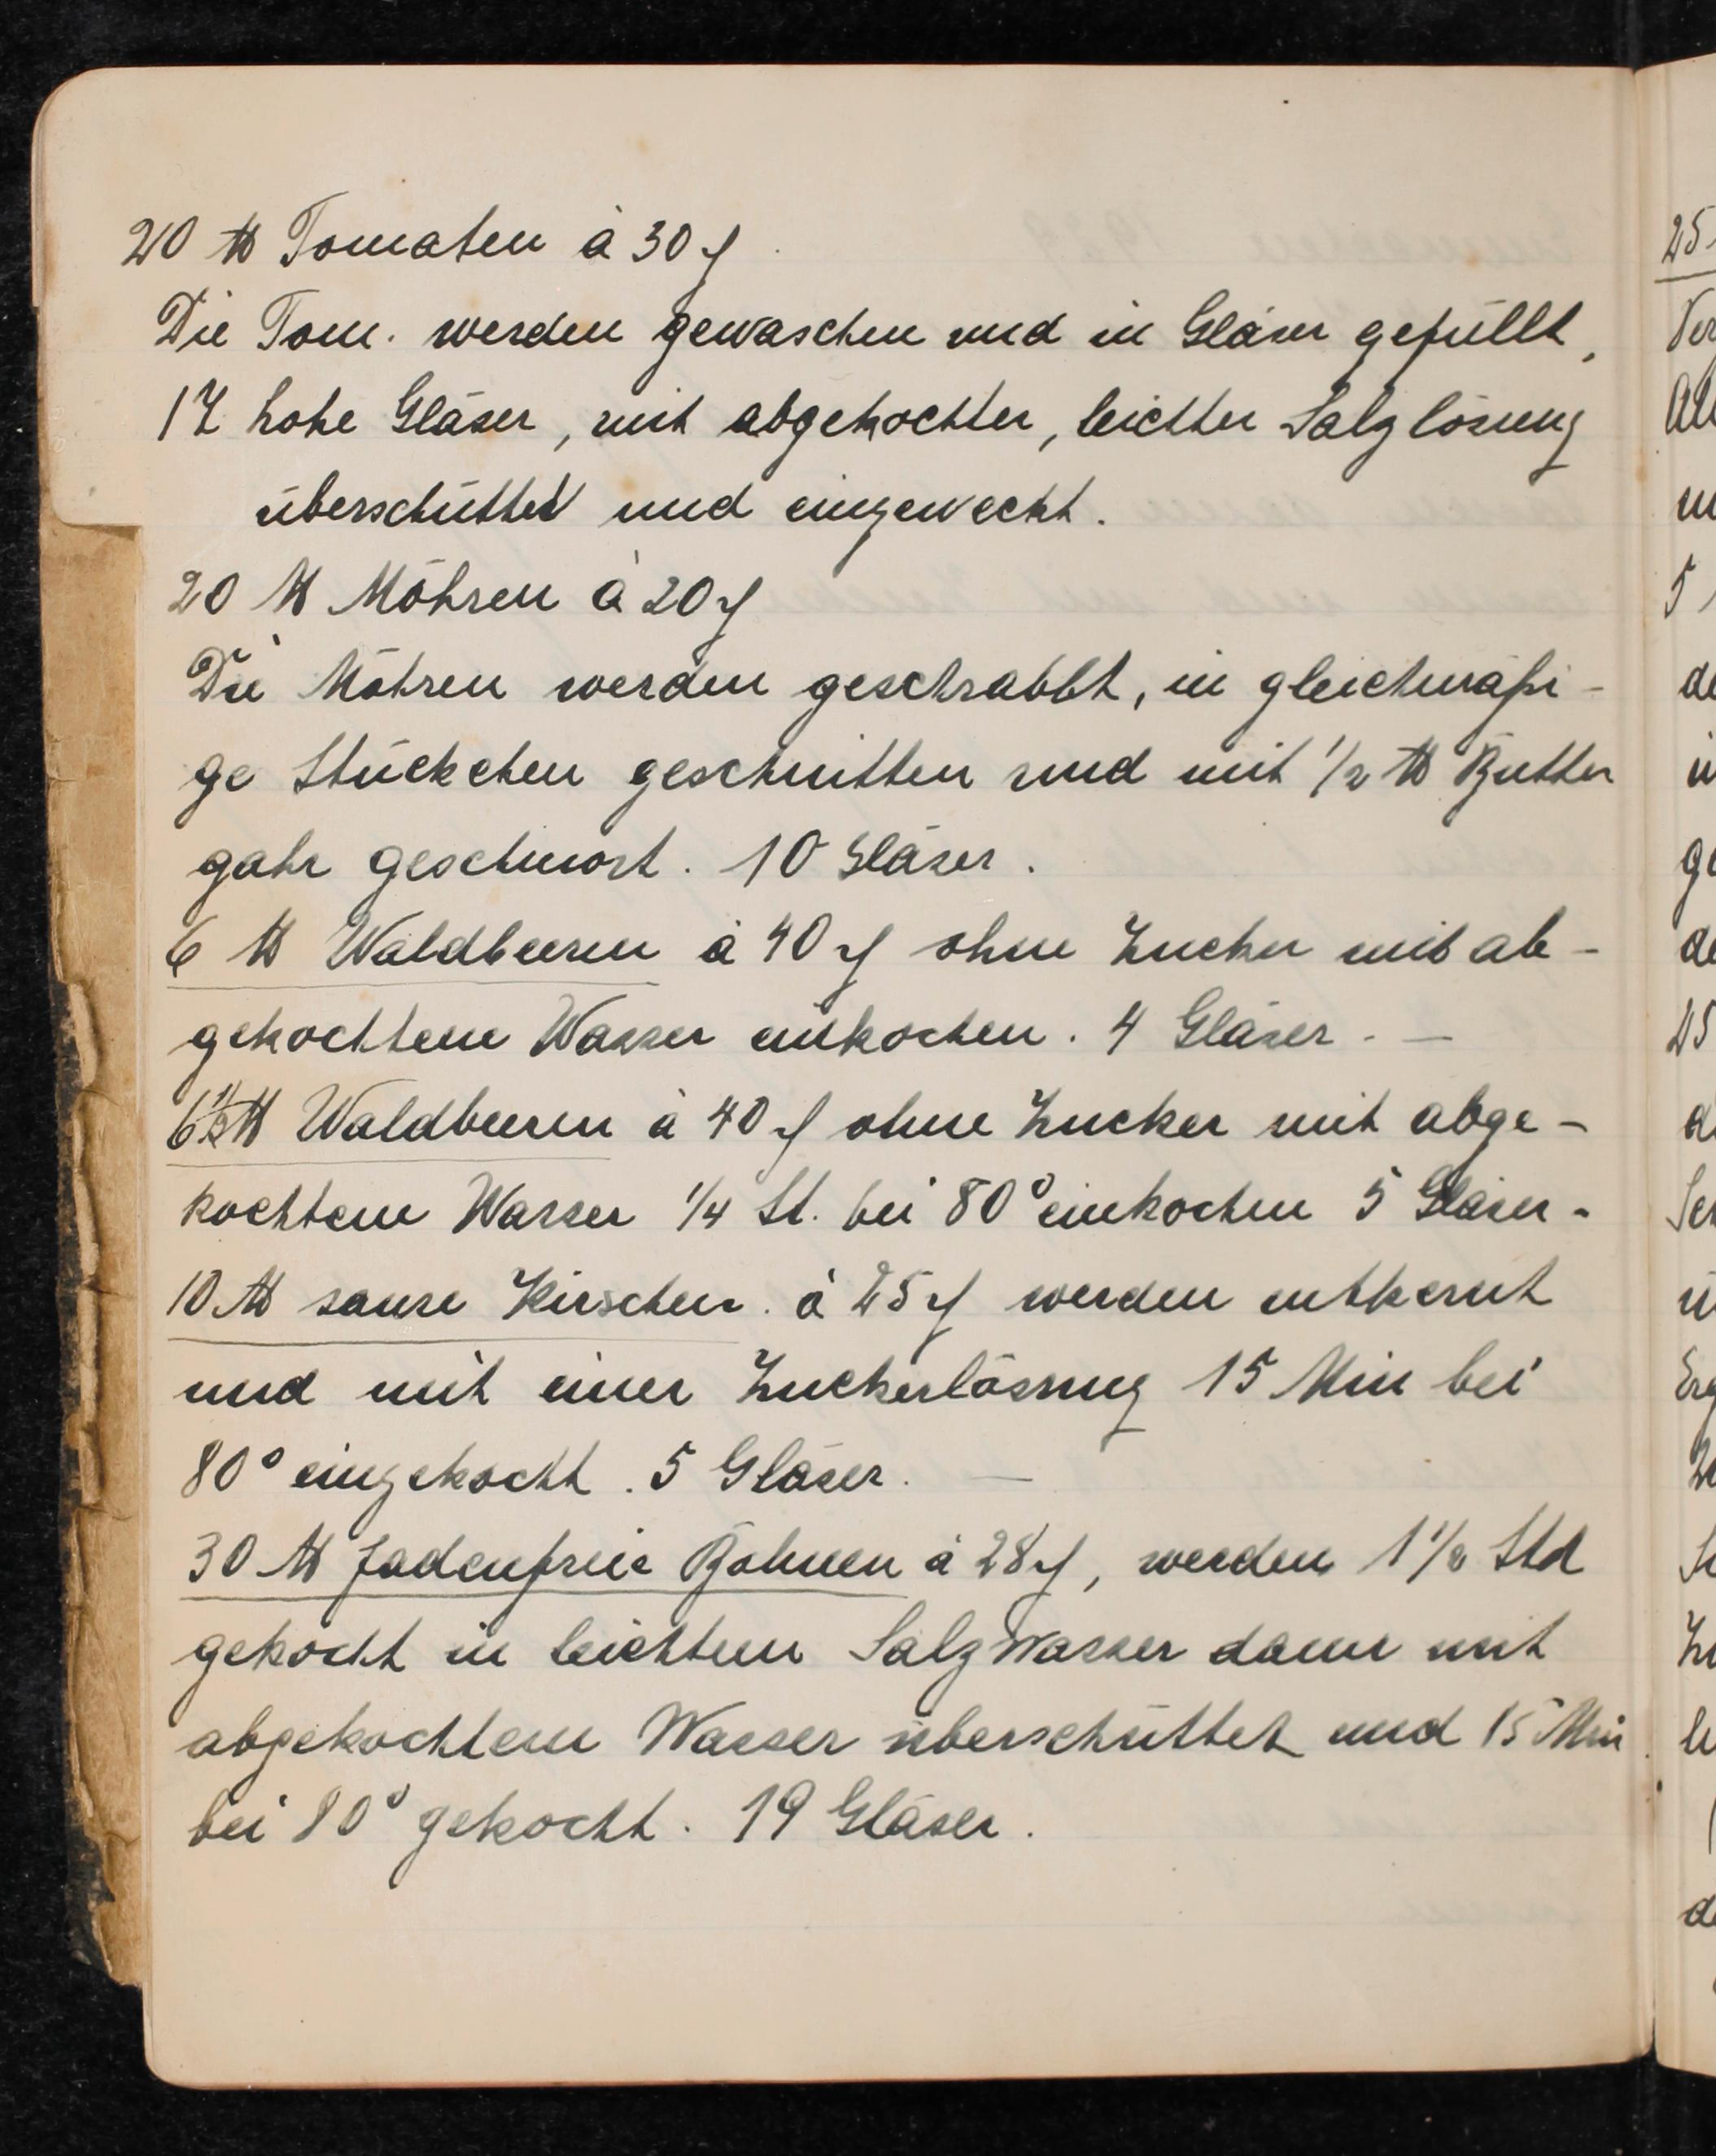 20 ℔ Tomaten à 30 ₰
Die Tom. werden gewaschen und in Gläser gefüllt,
17 hohe Gläser, mit abgekochter, leichter Salzlösung
überschüttet und eingeweckt.
20 ℔ Möhren à 20 ₰
Die Möhren werden geschrabbt, in gleichmäßi-
ge Stückchen geschnitten und mit 1/2 ℔ Butter
gahr geschmort. 10 Gläser.
6 ℔ Waldbeeren à 40 ₰ ohne Zucker mit ab-
gekochtem Wasser einkochen. 4 Gläser. —
6 1/2 ℔ Waldbeeren à 40 ₰ ohne Zucker mit abge-
kochtem Wasser 1/4 St. bei 80° einkochen 5 Gläser -
10 ℔ saure Kirschen. à 25 ₰ werden entkernt
und mit einer Zuckerlösung 15 Min bei
80° eingekocht. 5 Gläser. —
30 ℔ fadenfreie Bohnen à 28 ₰, werden 1 1/2 Std
gekocht in leichtem Salzwasser dann mit
abgekochtem Wasser überschüttet und 15 Min.
bei 80° gekocht. 19 Gläser.